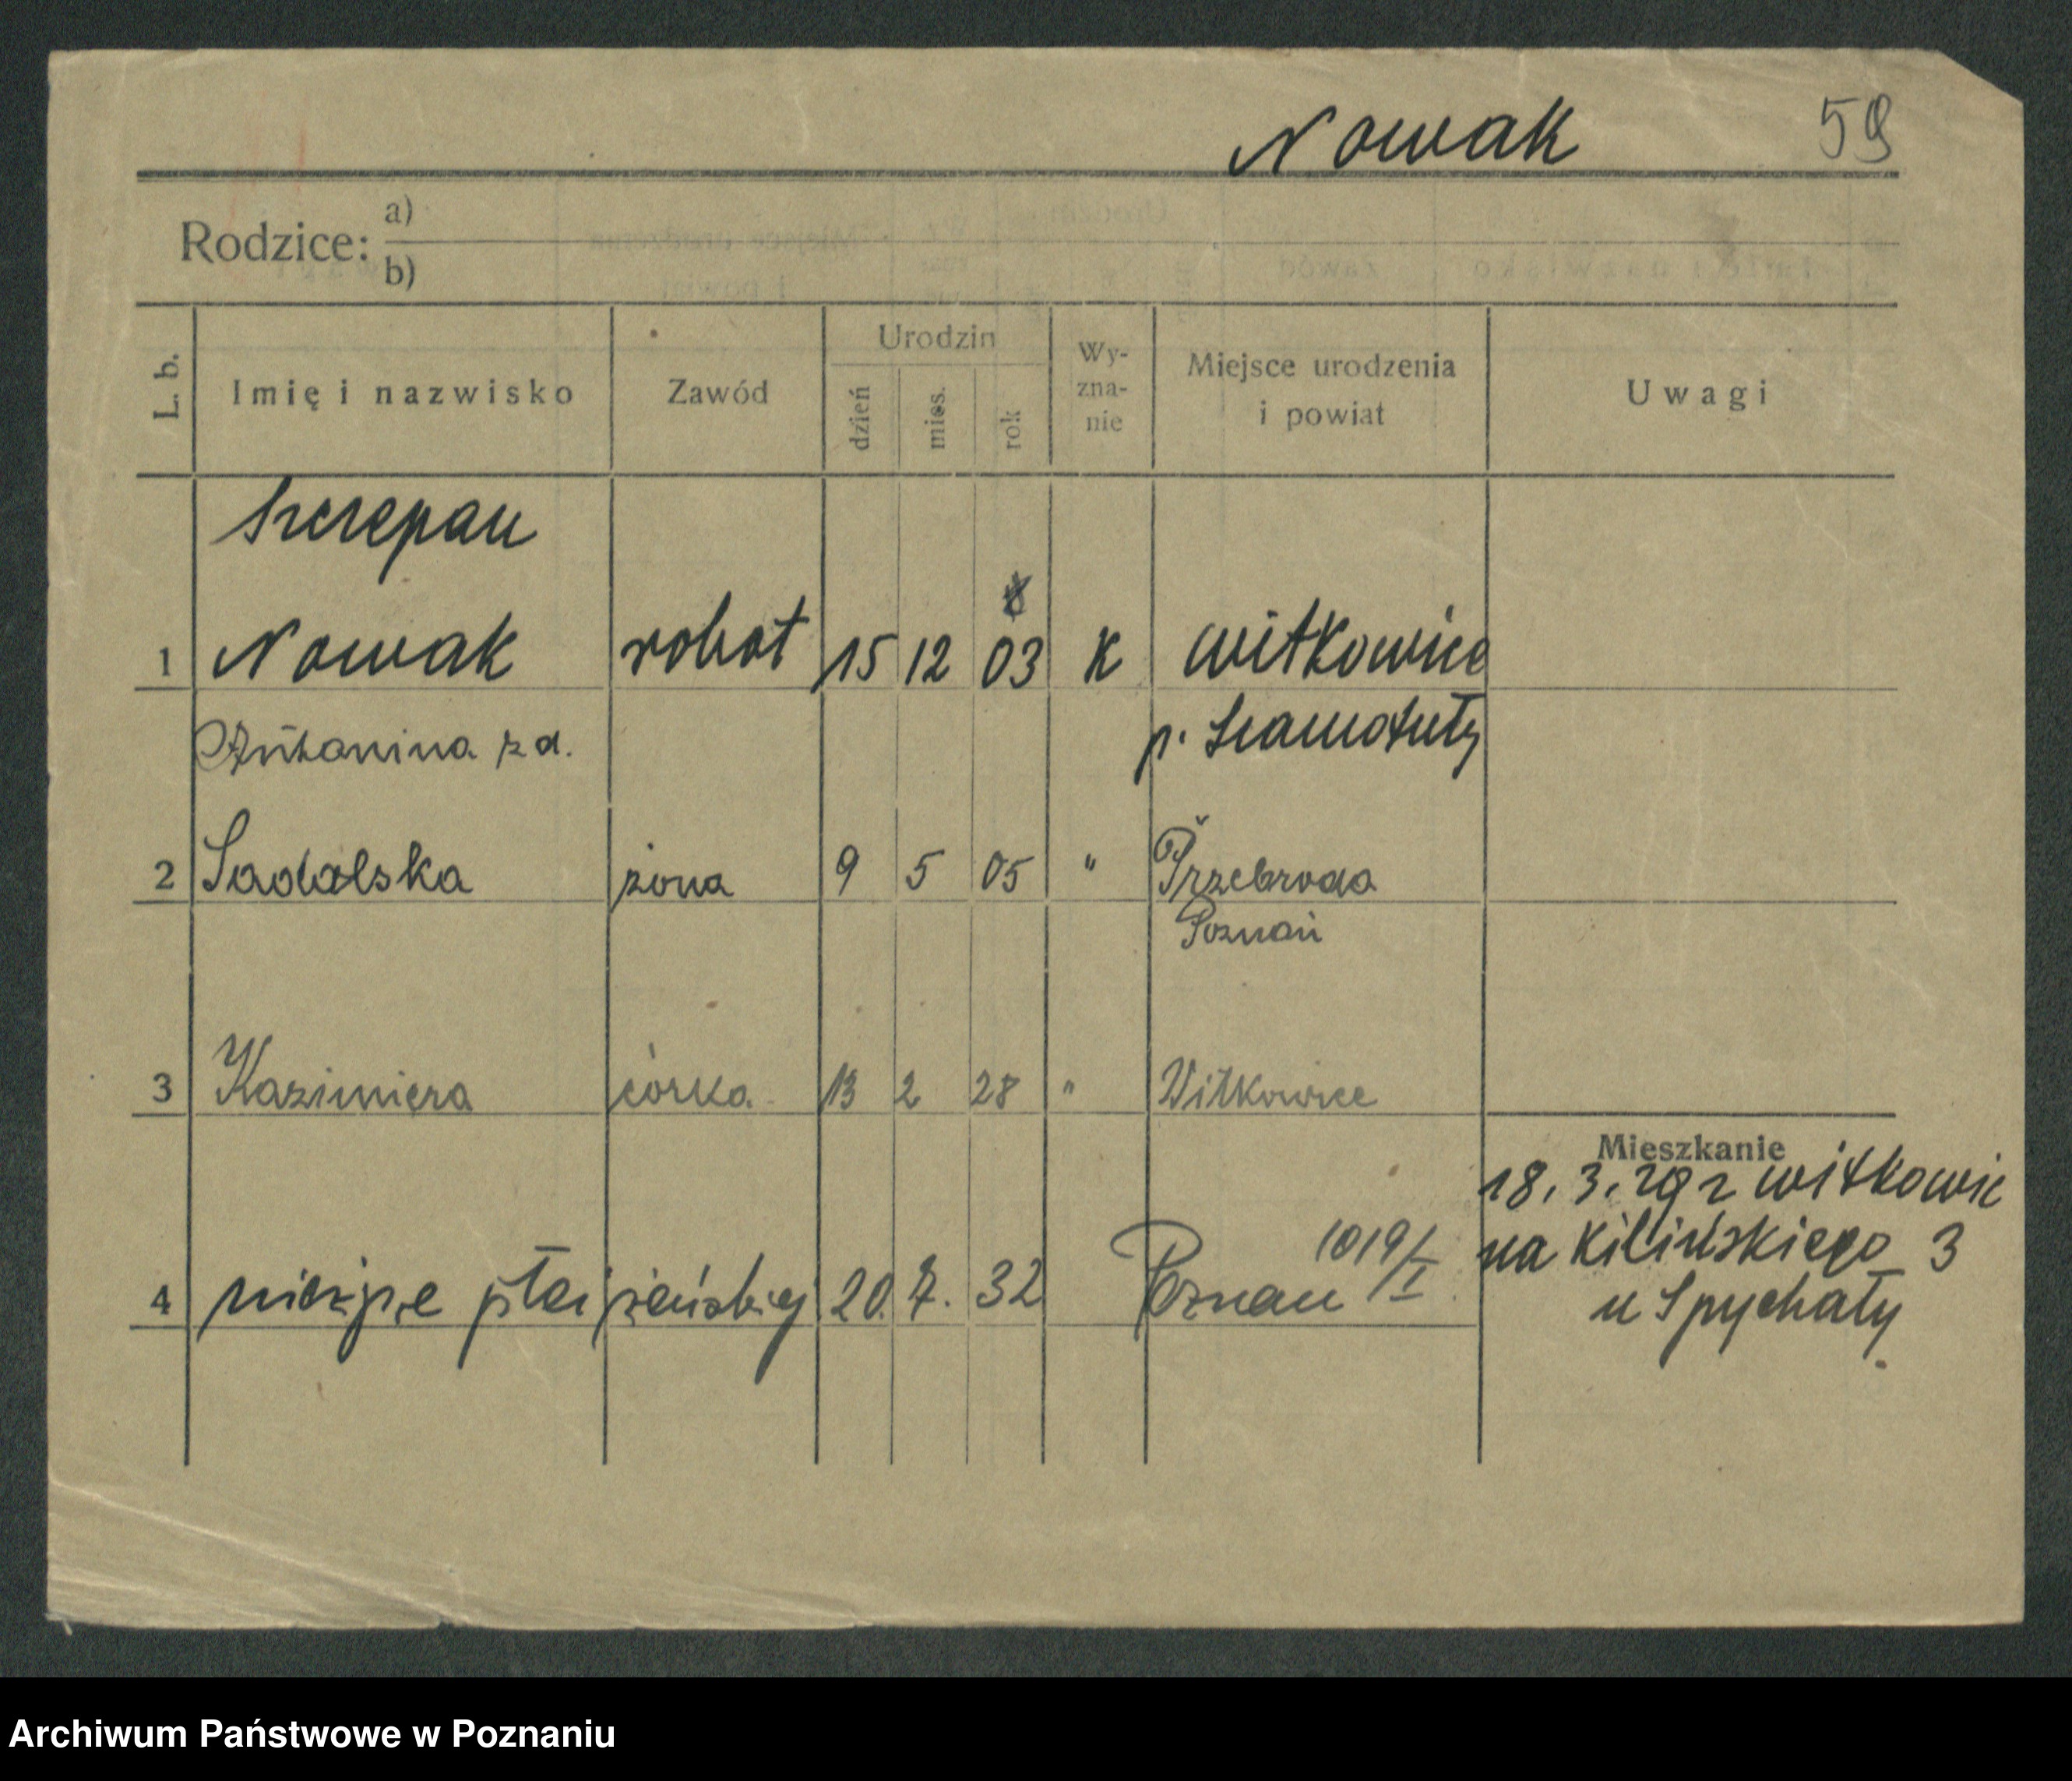 Nowak 59
Rodzice: a)
b)
L. b. Imię i nazwisko Zawód Urodzin dzień mies. rok Wy-zna-nie Miejsce urodzenia i powiat Uwagi
Szczepan
1 Nowak robot 15 12 03 K Witkowice
Antonina z d. p. Szamotuły
2 Sadalska żona 9 5 05 " Przebroda
Poznań
3 Kazimiera córka 13 2 28 " Witkowice
Mieszkanie
18. 3. 29 z Witkowic
1019/I na Kilińskiego 3
4 płci żeńskiej 20. 7. 32 Poznań
u Spychały
Archiwum Państwowe w Poznaniu